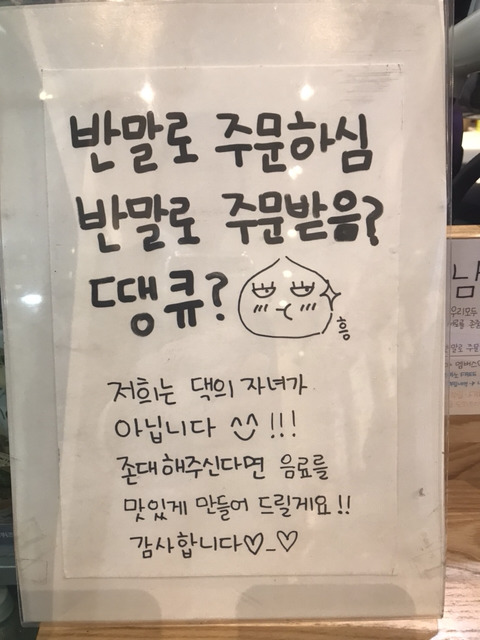 반말로 주문하심
반말로 주문받음?
땡큐?
흥
저희는 댁의 자녀가
아닙니다 ^^ !!!
존대해주신다면 음료를
맛있게 만들어 드릴게요!!
감사합니다♡_♡